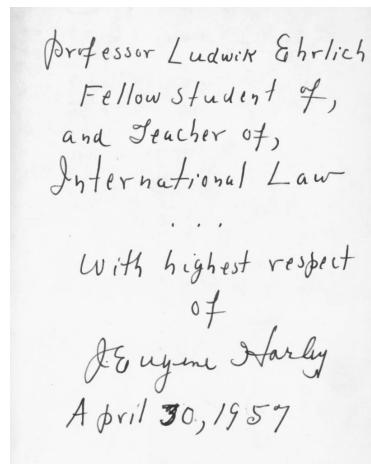 Professor Ludwik Ehrlich
Fellow student of,
and Teacher of,
International Law
. . .
With highest respect
of
J Eugene Harley
April 30, 1957